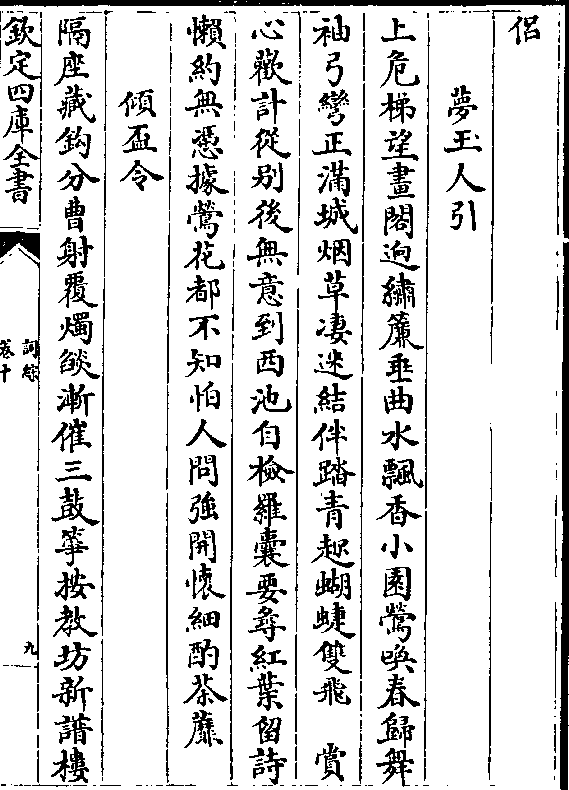 侣
夢玉人引
上危梯望畫閣逈繡簾垂曲水飄香小園鶯喚春歸舞
袖弓彎正滿城烟草凄迷結伴踏青趂蝴蝶雙飛　賞
心歡計從别後無意到西池自檢羅囊要尋紅葉留詩
懶約無憑據鶯花都不知怕人問強開懷細酌荼蘼
傾盃令
隔座藏鈎分曹射覆燭燄漸催三鼓箏按教坊新譜樓
欽定四庫全書
詞綜
卷十
九